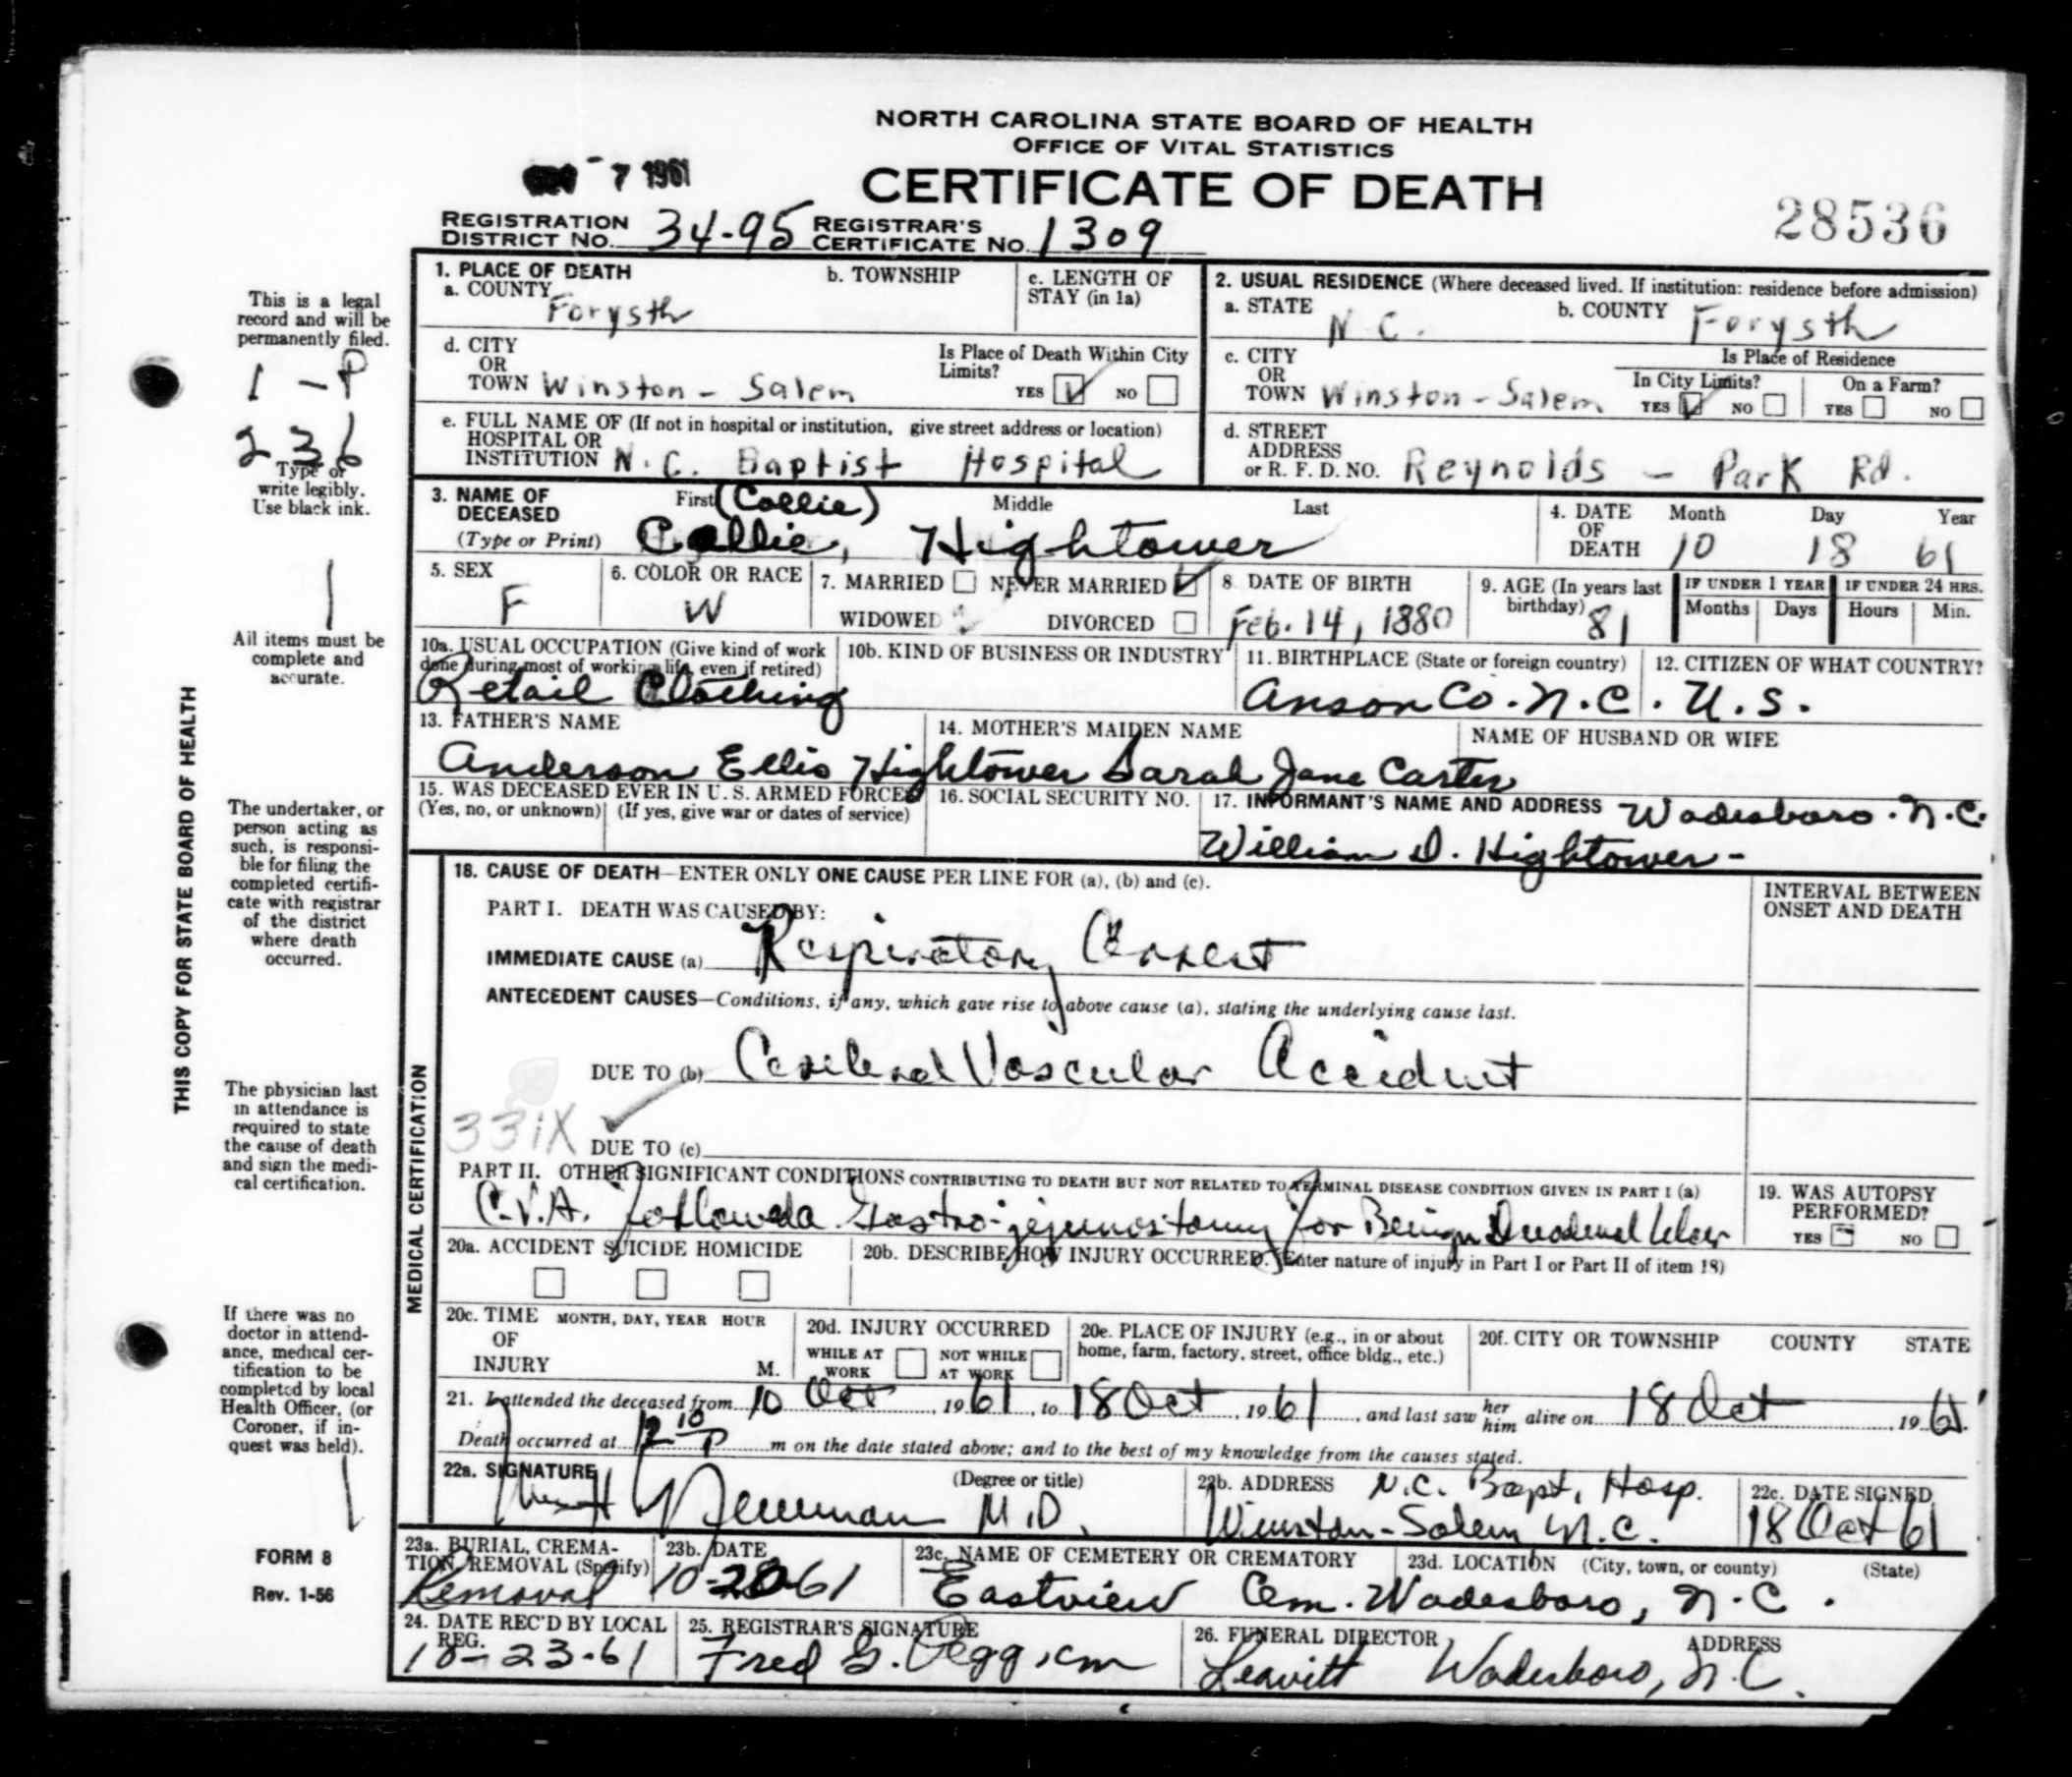 NORTH CAROLINA STATE BOARD OF HEALTH
OFFICE OF VITAL STATISTICS
CERTIFICATE OF DEATH
7 1961
28536
REGISTRATION DISTRICT NO. 34-95 REGISTRAR'S CERTIFICATE NO. 1309
THIS COPY FOR STATE BOARD OF HEALTH
This is a legal
record and will be
permanently filed.
1-P
236
Type or
write legibly.
Use black ink.
All items must be
complete and
accurate.
The undertaker, or
person acting as
such, is responsi-
ble for filing the
completed certifi-
cate with registrar
of the district
where death
occurred.
The physician last
in attendance is
required to state
the cause of death
and sign the medi-
cal certification.
If there was no
doctor in attend-
ance, medical cer-
tification to be
completed by local
Health Officer, (or
Coroner, if in-
quest was held).
FORM 8
Rev. 1-56
1. PLACE OF DEATH
a. COUNTY Forysth
b. TOWNSHIP
c. LENGTH OF STAY (in 1a)
d. CITY OR TOWN Winston-Salem
Is Place of Death Within City Limits? YES NO
e. FULL NAME OF (If not in hospital or institution, give street address or location)
HOSPITAL OR INSTITUTION N.C. Baptist Hospital
2. USUAL RESIDENCE (Where deceased lived. If institution: residence before admission)
a. STATE N C.
b. COUNTY Forysth
c. CITY OR TOWN Winston-Salem
Is Place of Residence
In City Limits? YES NO
On a Farm? YES NO
d. STREET ADDRESS or R. F. D. NO. Reynolds - Park Rd.
3. NAME OF DECEASED (Type or Print)
First Middle Last
(Collie)
Callie, Hightower
4. DATE OF DEATH Month Day Year
10 18 61
5. SEX F
6. COLOR OR RACE W
7. MARRIED NEVER MARRIED
WIDOWED DIVORCED
8. DATE OF BIRTH Feb. 14, 1880
9. AGE (In years last birthday) 81
IF UNDER 1 YEAR Months Days
IF UNDER 24 HRS. Hours Min.
10a. USUAL OCCUPATION (Give kind of work done during most of working life, even if retired)
Retail Clothing
10b. KIND OF BUSINESS OR INDUSTRY
11. BIRTHPLACE (State or foreign country)
Anson Co. N.C.
12. CITIZEN OF WHAT COUNTRY?
U.S.
13. FATHER'S NAME
Anderson Ellis Hightower
14. MOTHER'S MAIDEN NAME
Sarah Jane Carter
NAME OF HUSBAND OR WIFE
15. WAS DECEASED EVER IN U. S. ARMED FORCES
(Yes, no, or unknown) (If yes, give war or dates of service)
16. SOCIAL SECURITY NO.
17. INFORMANT'S NAME AND ADDRESS Wadesboro. N.C.
William D. Hightower-
MEDICAL CERTIFICATION
18. CAUSE OF DEATH—ENTER ONLY ONE CAUSE PER LINE FOR (a), (b) and (c).
INTERVAL BETWEEN ONSET AND DEATH
PART I. DEATH WAS CAUSED BY:
IMMEDIATE CAUSE (a) Respiratory Arrest
ANTECEDENT CAUSES—Conditions, if any, which gave rise to above cause (a), stating the underlying cause last.
DUE TO (b) Cerebral Vascular Accident
331X
DUE TO (c)
PART II. OTHER SIGNIFICANT CONDITIONS CONTRIBUTING TO DEATH BUT NOT RELATED TO TERMINAL DISEASE CONDITION GIVEN IN PART I (a)
C.V.A. followed a Gastro-jejunostomy for Benign Duodenal Ulcer
19. WAS AUTOPSY PERFORMED?
YES NO
20a. ACCIDENT SUICIDE HOMICIDE
20b. DESCRIBE HOW INJURY OCCURRED. (Enter nature of injury in Part I or Part II of item 18)
20c. TIME OF INJURY MONTH, DAY, YEAR HOUR M.
20d. INJURY OCCURRED
WHILE AT WORK NOT WHILE AT WORK
20e. PLACE OF INJURY (e.g., in or about home, farm, factory, street, office bldg., etc.)
20f. CITY OR TOWNSHIP COUNTY STATE
21. I attended the deceased from 10 Oct, 1961, to 18 Oct, 1961, and last saw her him alive on 18 Oct, 1961.
Death occurred at 12 10 P m on the date stated above; and to the best of my knowledge from the causes stated.
22a. SIGNATURE (Degree or title)
Newman M.D.
22b. ADDRESS N.C. Bapt. Hosp.
Winston-Salem N.C.
22c. DATE SIGNED
18 Oct 61
23a. BURIAL, CREMATION, REMOVAL (Specify)
Removal
23b. DATE
10-20-61
23c. NAME OF CEMETERY OR CREMATORY
Eastview Cem.
23d. LOCATION (City, town, or county) (State)
Wadesboro, N.C.
24. DATE REC'D BY LOCAL REG.
10-23-61
25. REGISTRAR'S SIGNATURE
Fred G. Pegg, cm
26. FUNERAL DIRECTOR ADDRESS
Leavitt Wadesboro, N.C.